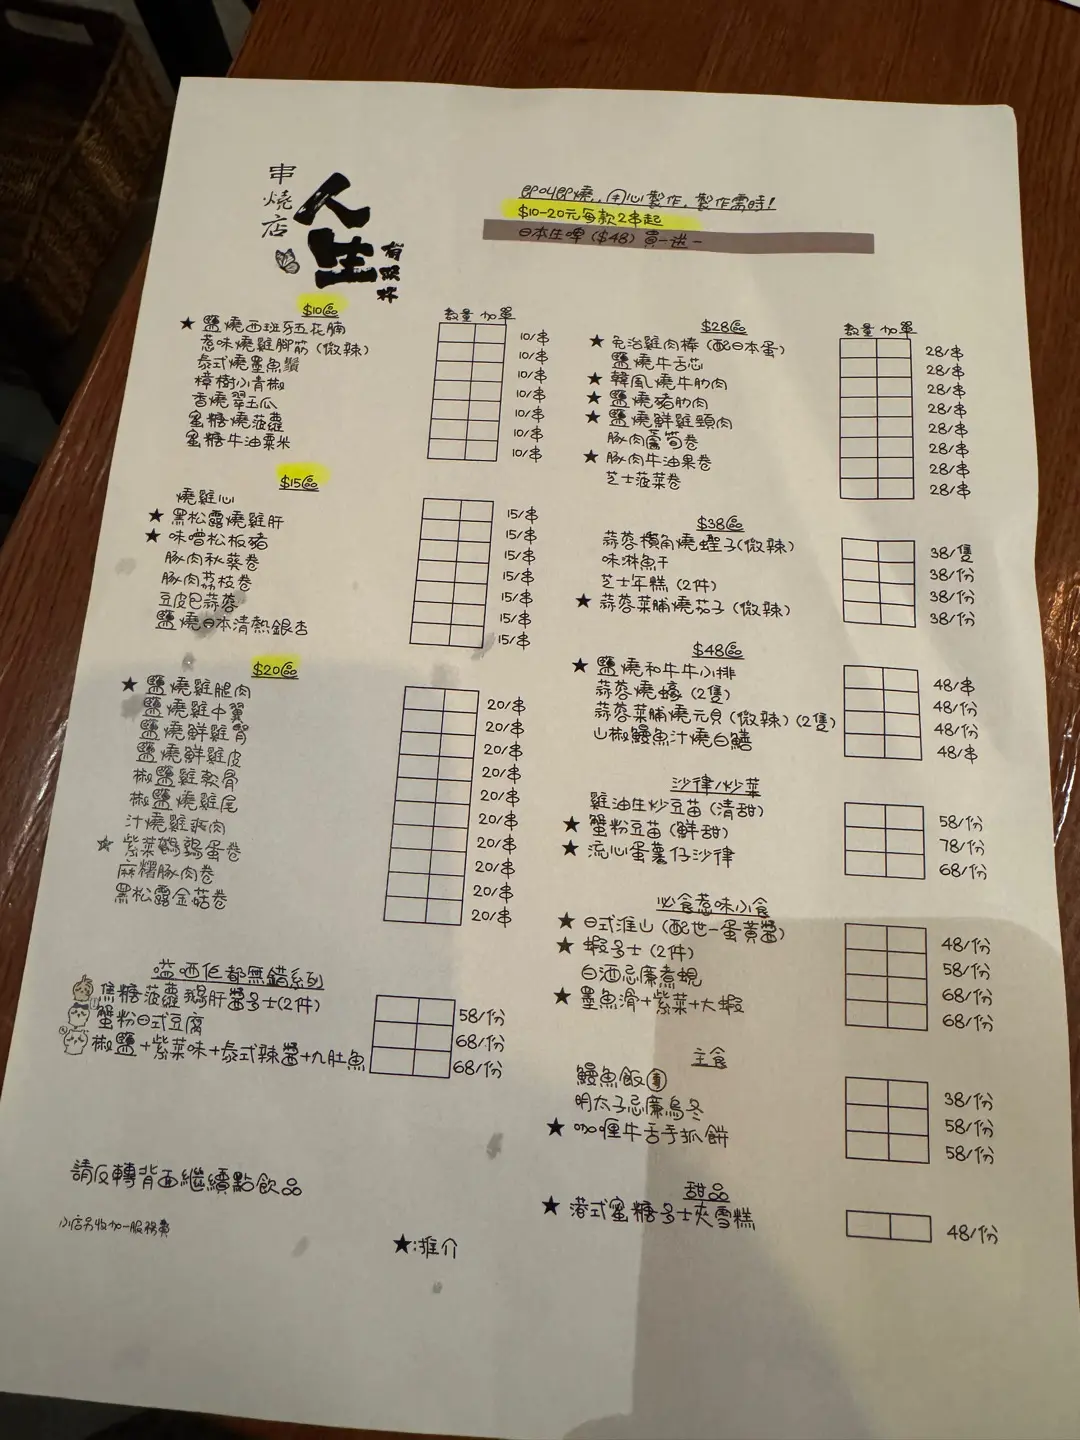 串燒店
人生
有限杯
即叫即燒，用心製作，製作需時！
$10-20元每款2串起
日本生啤（$48）買一送一
$10區
數量 加單
★ 鹽燒西班牙五花腩 10/串
惹味燒雞腳筋（微辣） 10/串
泰式燒墨魚鬚 10/串
樟樹小青椒 10/串
香燒翠玉瓜 10/串
蜜糖燒菠蘿 10/串
蜜糖牛油粟米 10/串
$15區
燒雞心 15/串
★ 黑松露燒雞肝 15/串
★ 味噌松板豬 15/串
豚肉秋葵卷 15/串
豚肉荔枝卷 15/串
豆皮巴蒜蓉 15/串
鹽燒日本清熱銀杏 15/串
$20區
★ 鹽燒雞腿肉 20/串
鹽燒雞中翼 20/串
鹽燒鮮雞腎 20/串
鹽燒鮮雞皮 20/串
椒鹽雞軟骨 20/串
椒鹽燒雞尾 20/串
汁燒雞爽肉 20/串
★ 紫菜鵪鶉蛋卷 20/串
麻糬豚肉卷 20/串
黑松露金菇卷 20/串
嗌哂佢都無錯系列
焦糖菠蘿鵝肝醬多士(2件) 58/份
蟹粉日式豆腐 68/份
椒鹽+紫菜味+泰式辣醬+九肚魚 68/份
請反轉背面繼續點飲品
小店另收加一服務費
★:推介
$28區
數量 加單
★ 免治雞肉棒（配日本蛋） 28/串
鹽燒牛舌芯 28/串
★ 韓風燒牛肋肉 28/串
★ 鹽燒豬肋肉 28/串
★ 鹽燒鮮雞頸肉 28/串
豚肉蘆筍卷 28/串
★ 豚肉牛油果卷 28/串
芝士菠菜卷 28/串
$38區
蒜蓉橫角燒蟶子(微辣) 38/隻
味淋魚干 38/份
芝士年糕（2件） 38/份
★ 蒜蓉菜脯燒茄子（微辣） 38/份
$48區
★ 鹽燒和牛牛小排 48/串
蒜蓉燒蠔（2隻） 48/份
蒜蓉菜脯燒元貝（微辣）（2隻） 48/份
山椒鰻魚汁燒白鱔 48/串
沙律/炒菜
雞油生炒豆苗（清甜） 58/份
★ 蟹粉豆苗（鮮甜） 78/份
★ 流心蛋薯仔沙律 68/份
必食惹味小食
★ 日式淮山（配世一蛋黃醬） 48/份
★ 蝦多士（2件） 58/份
白酒忌廉煮蜆 68/份
★ 墨魚滑+紫菜+大蝦 68/份
主食
鰻魚飯 38/份
明太子忌廉烏冬 58/份
★ 咖喱牛舌手抓餅 58/份
甜品
★ 港式蜜糖多士夾雪糕 48/份